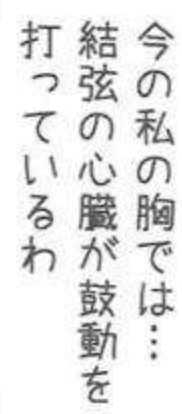 今の私の胸では…
結弦の心臓が鼓動を
打っているわ